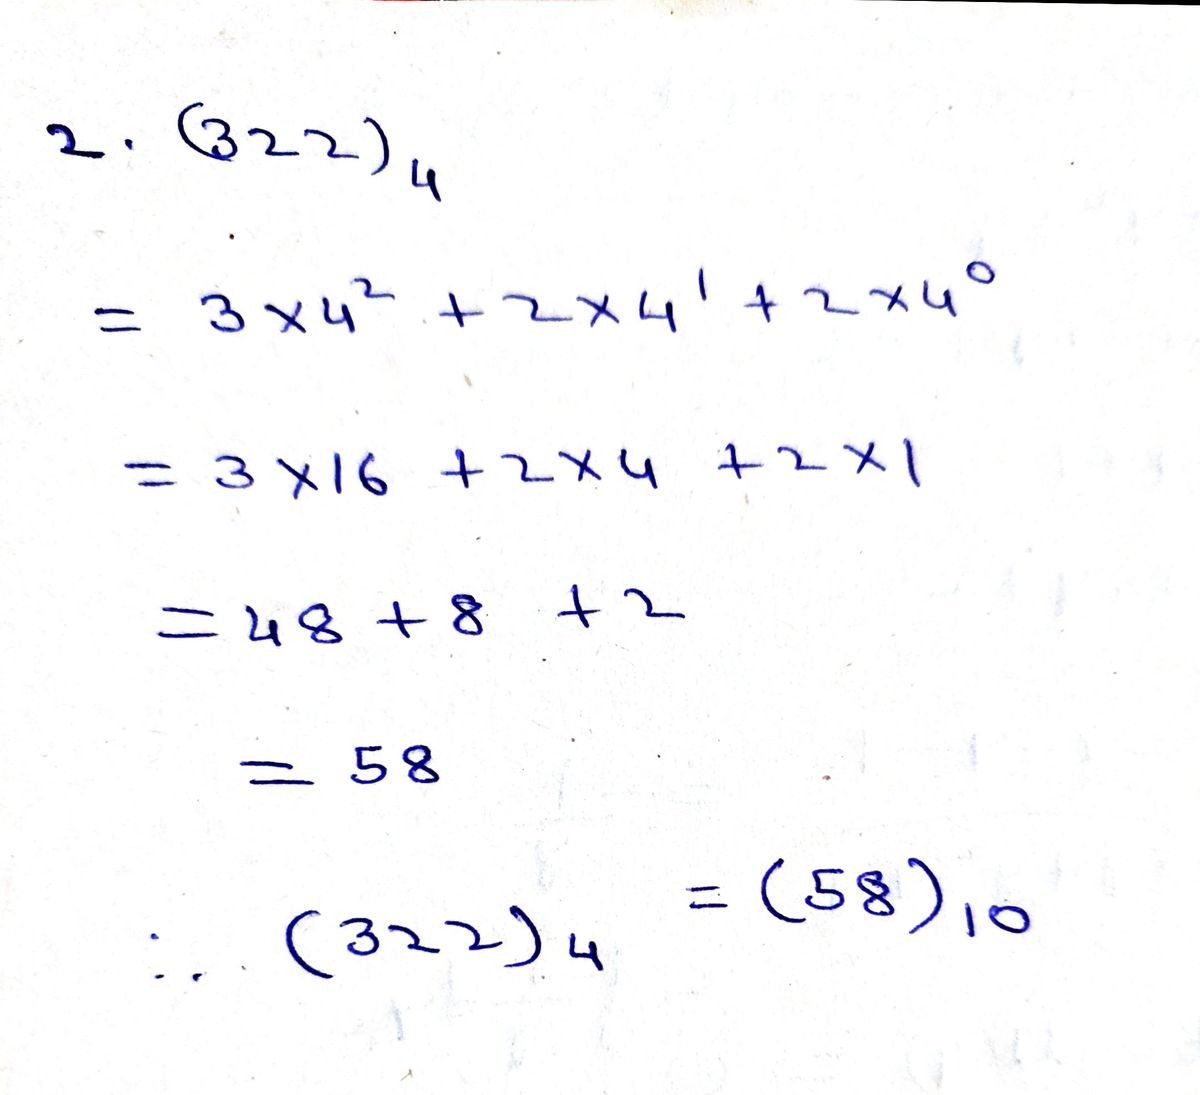 2. (322)₄
= 3×4² + 2×4¹ + 2×4⁰
= 3×16 + 2×4 + 2×1
= 48 + 8 + 2
= 58
∴ (322)₄ = (58)₁₀